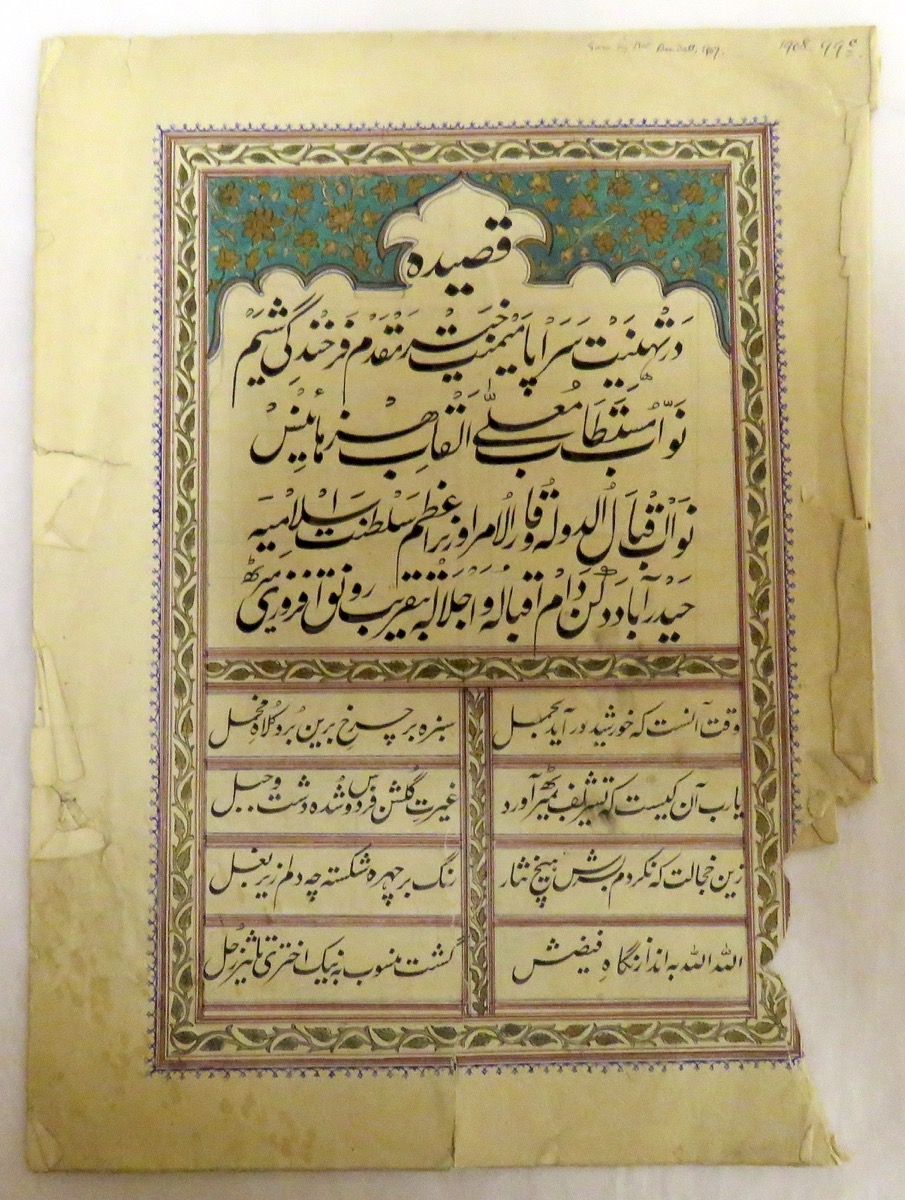 Given by Prof. Bendall, 1907. 1908.99 c/2.
قصیده
در تهنیت سراپا میمنت خیر مقدم فرخندگی شیم
نوّاب مستطاب معلّی القاب هز هائینس
نواب اقبال الدوله وقار الامرا وزیر اعظم سلطنت اسلامیه
حیدرآباد دکن دام اقباله و اجلاله بتقریب رونق افروزی میرٹھ
وقت آنست که خورشید درآید بحمل سبزه بر چرخ برین برد کلاه مخمل
یارب آن کیست که تشریف بمیرٹھ آورد غیرت گلشن فردوس شده دشت و جبل
زین خجالت که نکردم بسرش هیچ نثار رنگ بر چهره شکسته چه دلم زیر بغل
الله الله به انداز نگاه فیضش گشت منسوب به نیک اختری تاثیر زحل